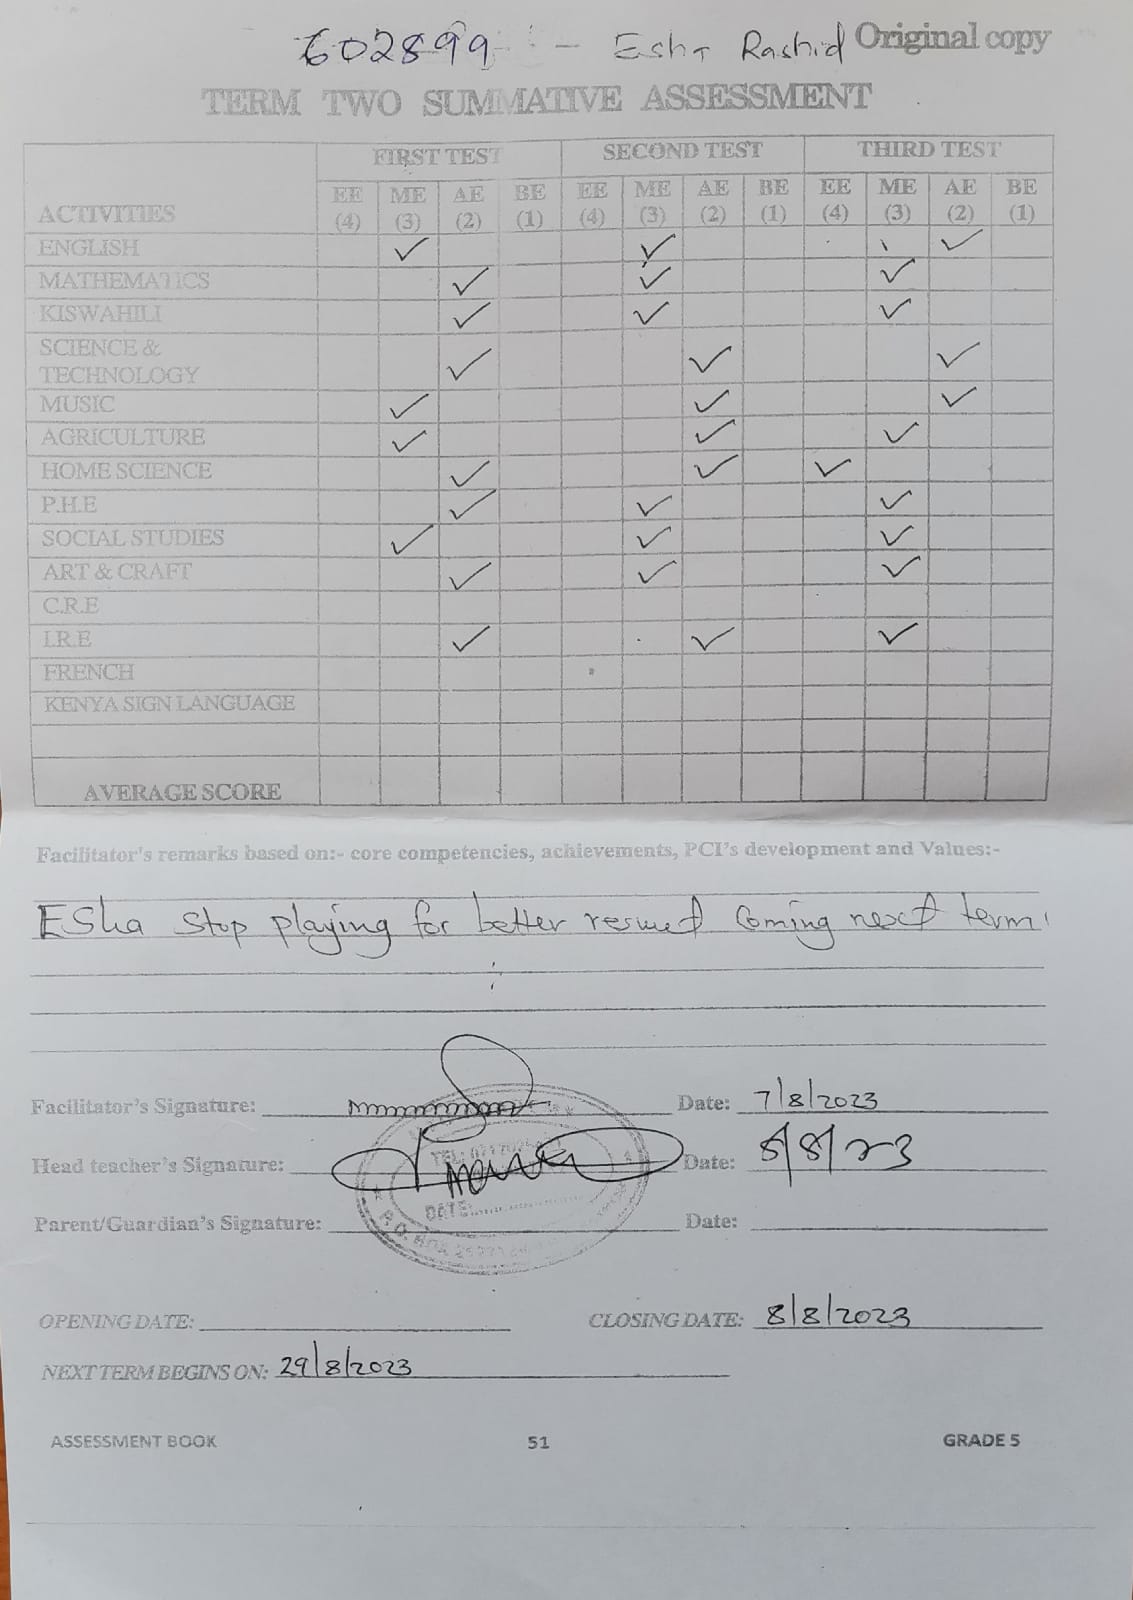 602899 - Esha Rashid Original copy
TERM TWO SUMMATIVE ASSESSMENT
FIRST TEST SECOND TEST THIRD TEST
ACTIVITIES EE (4) ME (3) AE (2) BE (1) EE (4) ME (3) AE (2) BE (1) EE (4) ME (3) AE (2) BE (1)
ENGLISH ✓ ✓ ✓
MATHEMATICS ✓ ✓ ✓
KISWAHILI ✓ ✓ ✓
SCIENCE &
TECHNOLOGY ✓ ✓ ✓
MUSIC ✓ ✓ ✓
AGRICULTURE ✓ ✓ ✓
HOME SCIENCE ✓ ✓ ✓
P.H.E ✓ ✓ ✓
SOCIAL STUDIES ✓ ✓ ✓
ART & CRAFT ✓ ✓ ✓
C.R.E
I.R.E ✓ ✓ ✓
FRENCH
KENYA SIGN LANGUAGE
AVERAGE SCORE
Facilitator's remarks based on:- core competencies, achievements, PCI's development and Values:-
Esha stop playing for better resuet coming next term
Facilitator's Signature: Date: 7/8/2023
Head teacher's Signature: Date: 8/8/23
TEL:
DATE:
Parent/Guardian's Signature: Date:
P.O. Box
OPENING DATE: CLOSING DATE: 8/8/2023
NEXT TERM BEGINS ON: 29/8/2023
ASSESSMENT BOOK 51 GRADE 5